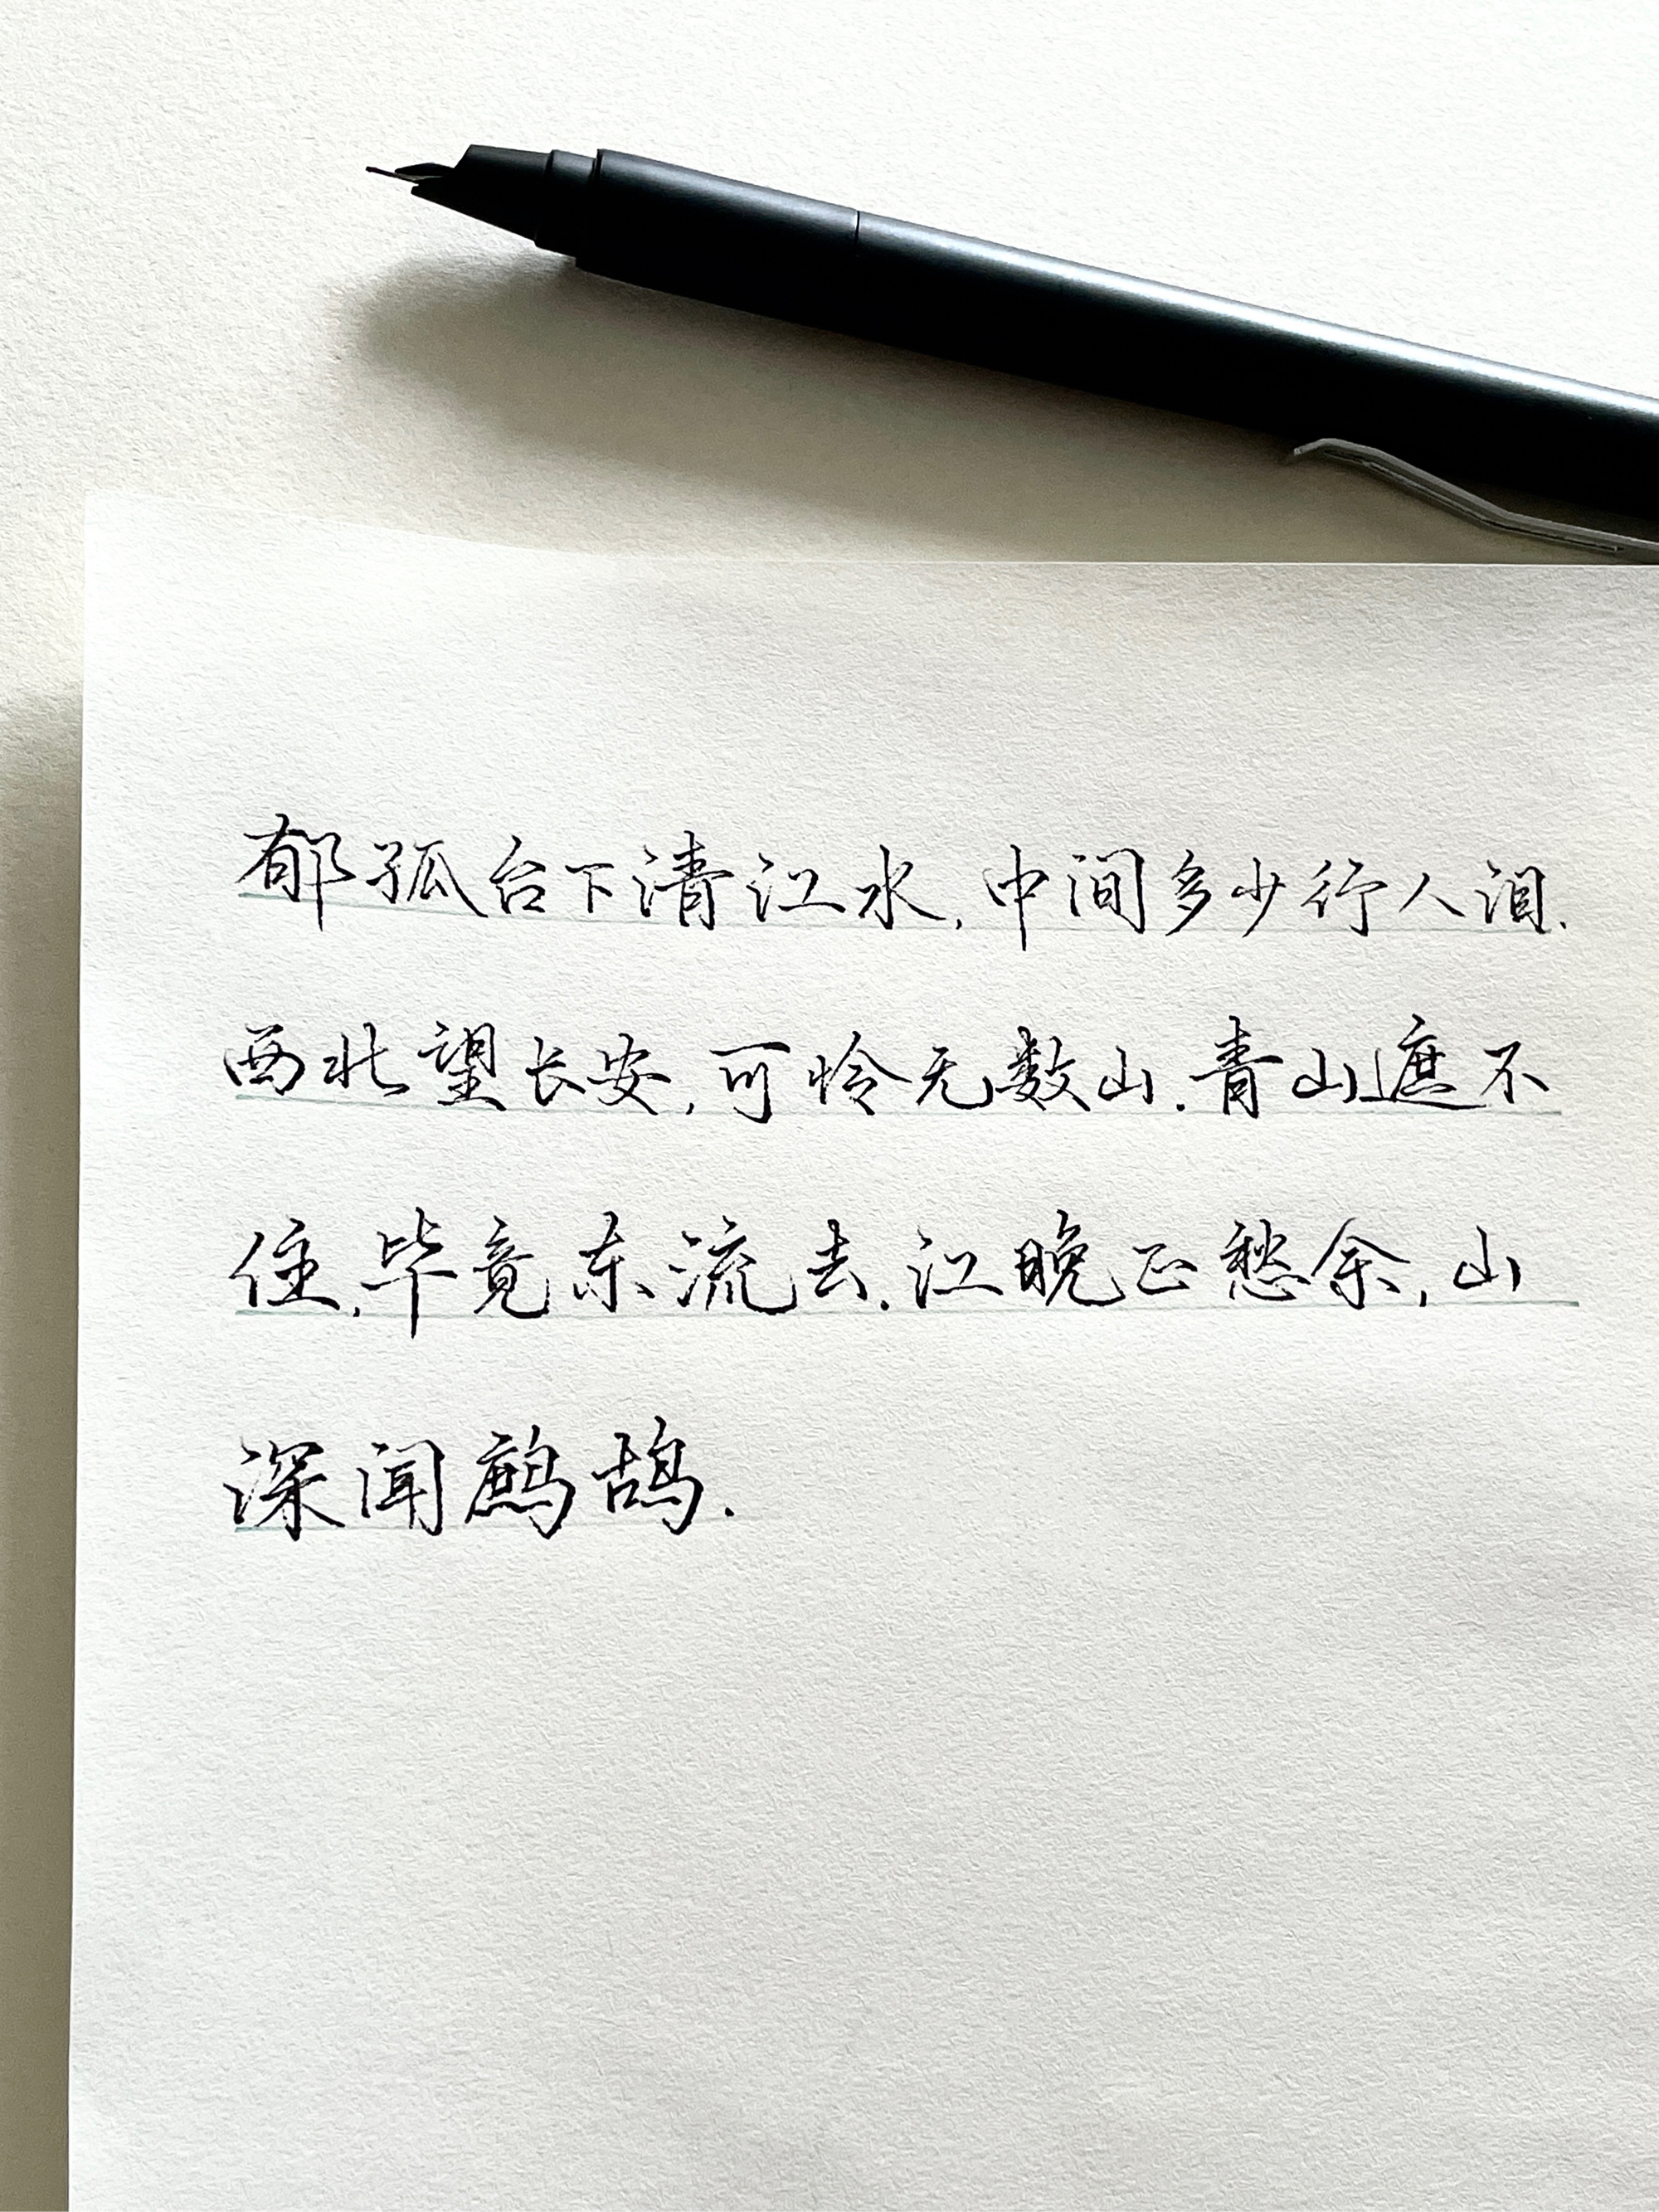 郁孤台下清江水,中间多少行人泪.
西北望长安,可怜无数山.青山遮不
住,毕竟东流去.江晚正愁余,山
深闻鹧鸪.